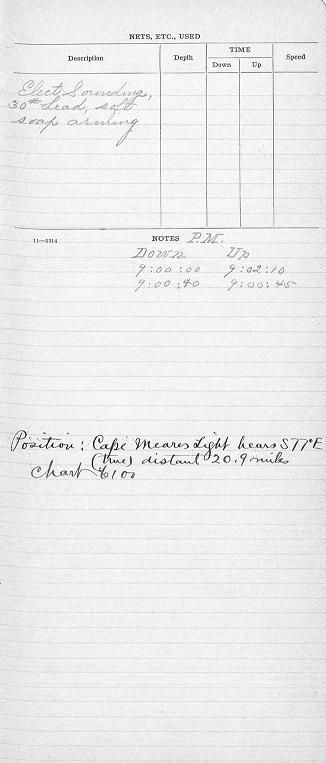 NETS, ETC., USED
Description Depth TIME Speed
Down Up
Elect Sounding,
30# Lead, soft
soap arming
11—5314 NOTES P.M.
Down Up
9:00:00 9:02:10
9:00:40 9:00:45
Position: Cape Meares Light bears S77°E
(true) distant 20.9 miles
Chart 6100